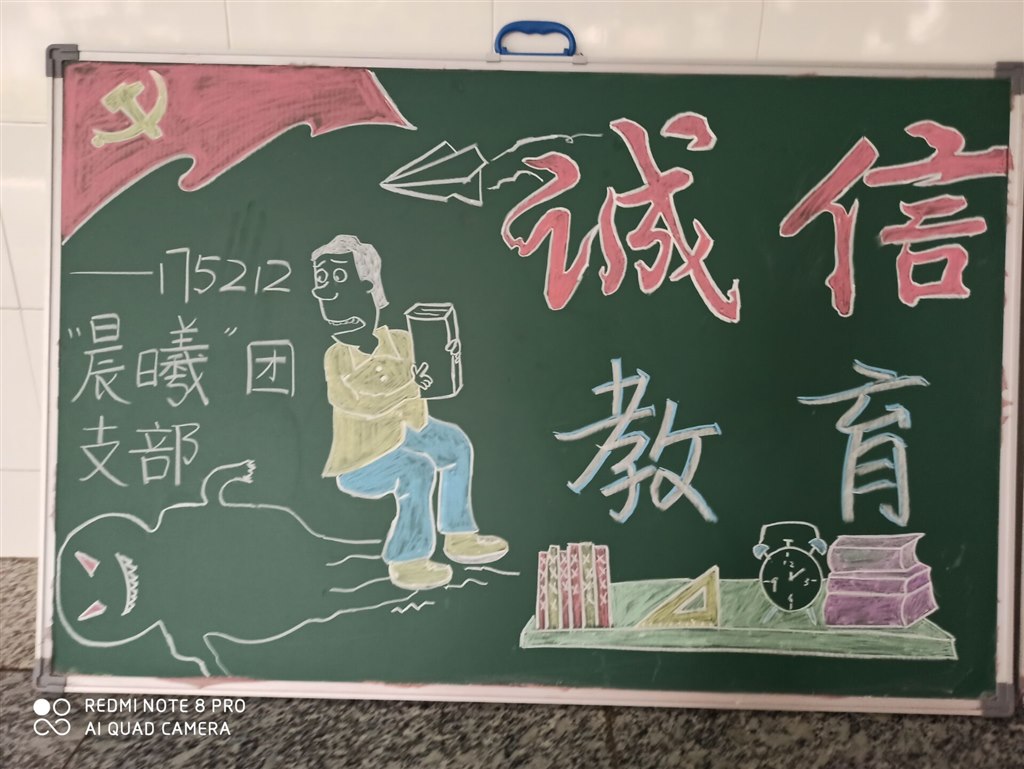 诚信
教育
——175212
“晨曦”团
支部
12
3
6
9
REDMI NOTE 8 PRO
AI QUAD CAMERA